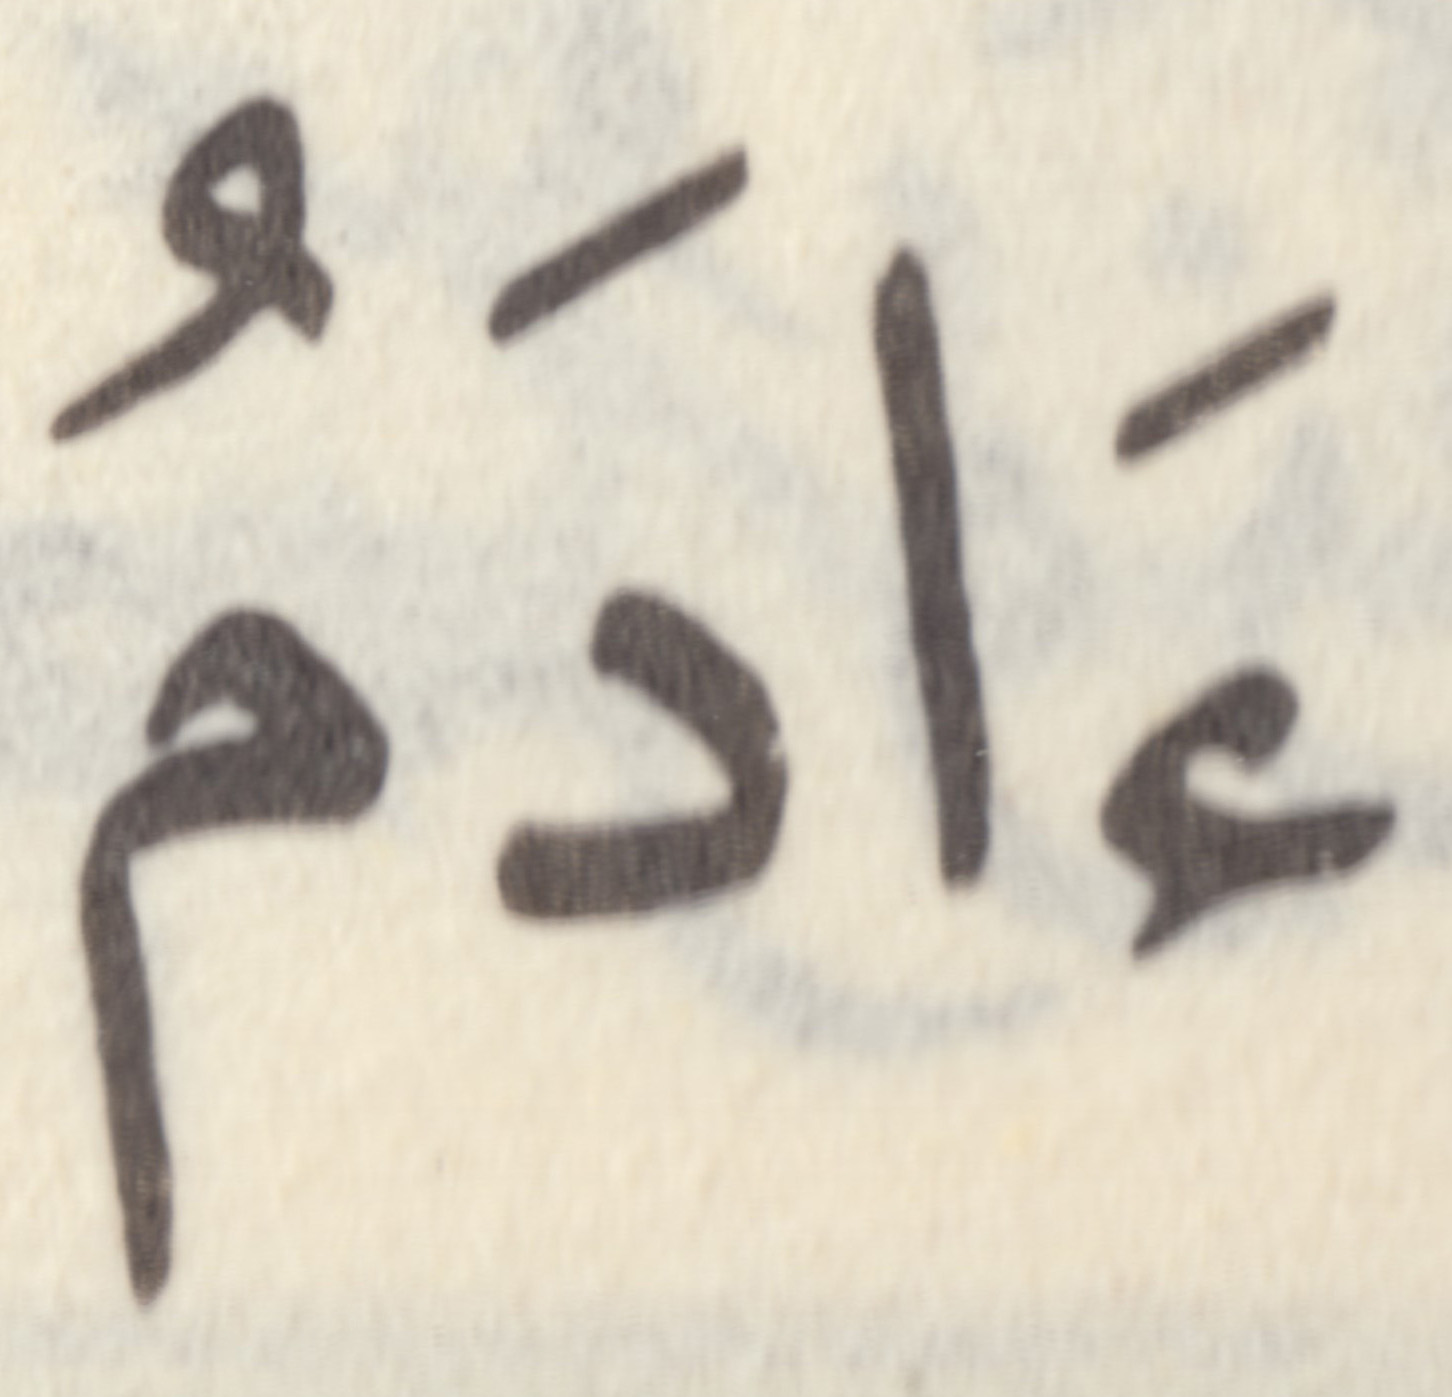 ءَادَمُ